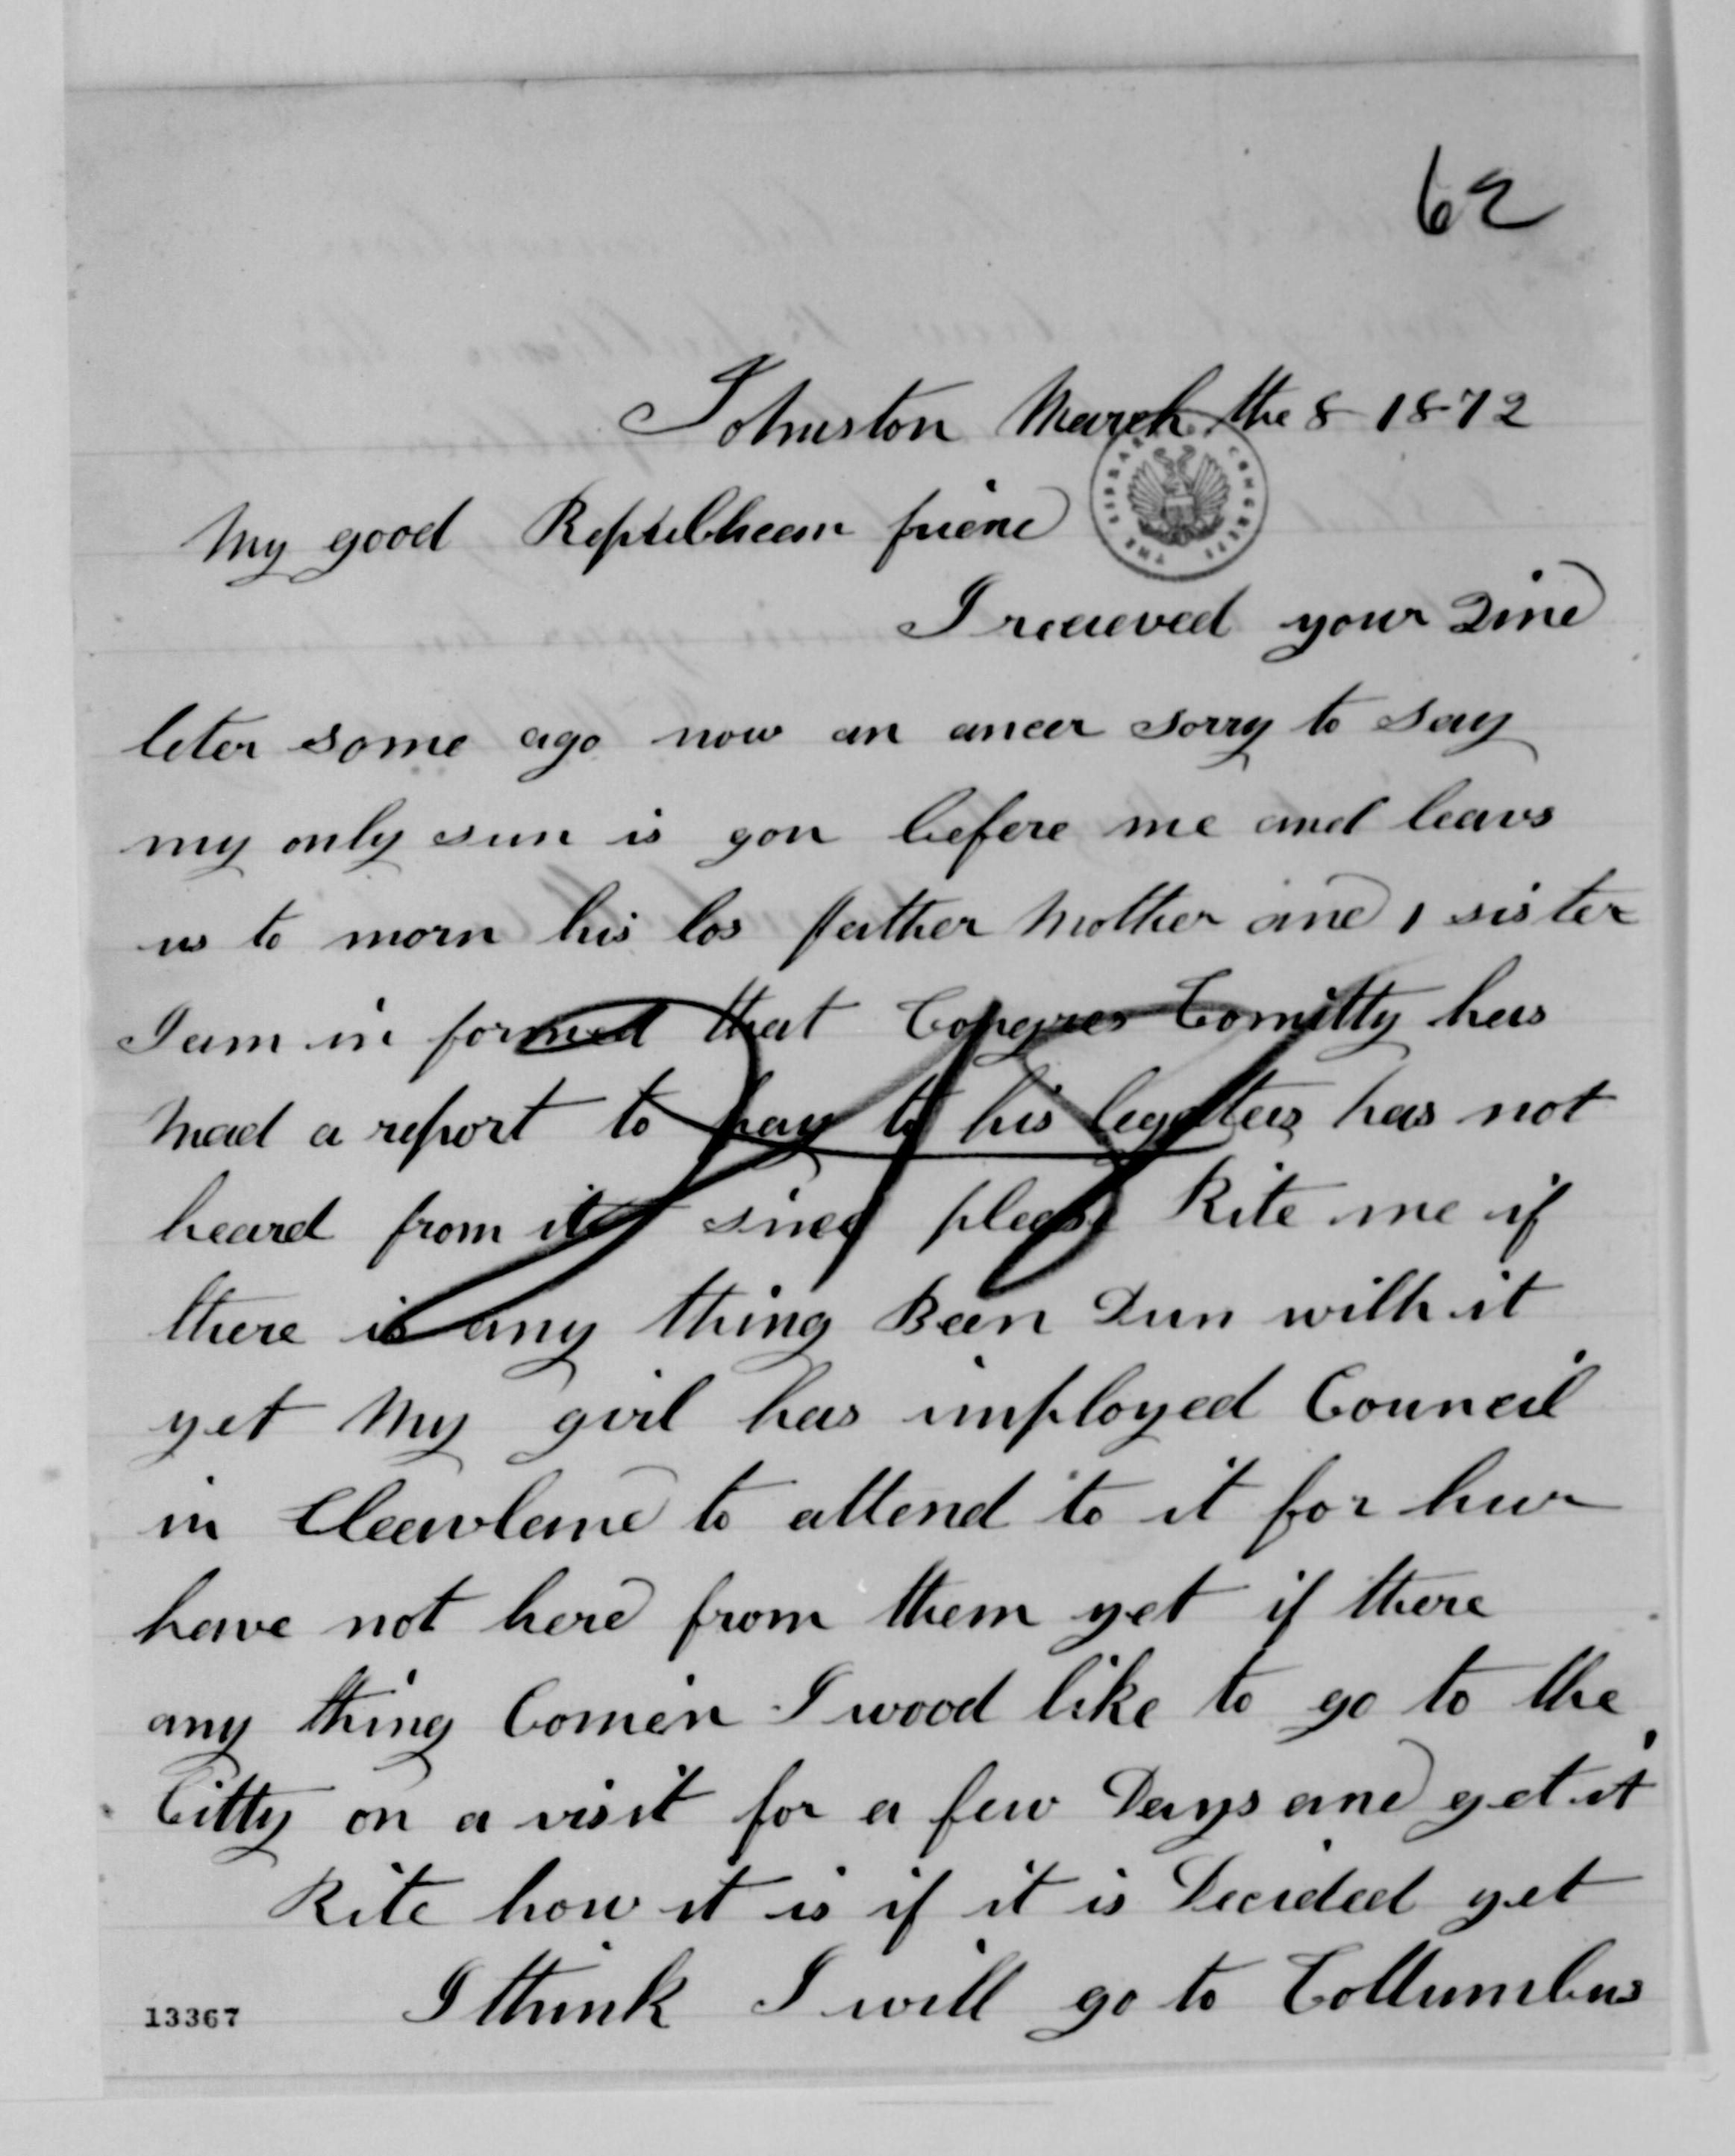 62
Johnston March the 8 1872
THE LIBRARY CONGRESS
My good Republican friend
I recieved your Kind
leter some ago now an ancer sorry to say
my only sun is gon before me and leavs
us to morn his los father Mother and 1 sister
I am in formed that Congres Comitty has
Mad a report to pay to his legatees has not
heard from it since please Rite me if
there is any thing Been Dun with it
yet My girl has imployed Council
in Cleavland to attend to it for hur
have not herd from them yet if there
any thing Comen I wood like to go to the
Citty on a visit for a few Days and get it
Rite how it is if it is Decided yet
I think I will go to Collumbus
13367